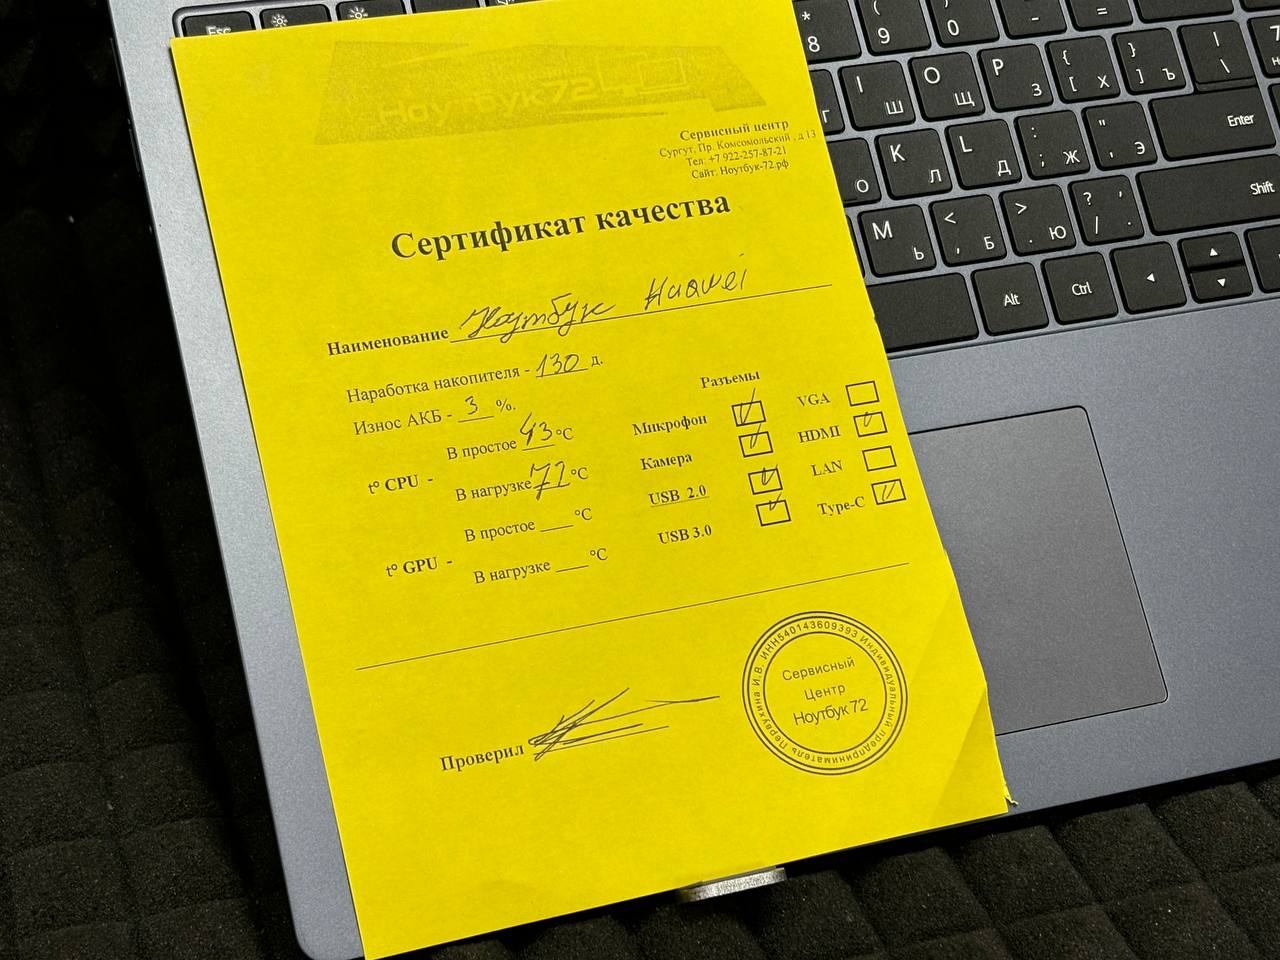 Ноутбук 72
Сервисный центр
Сургут, Пр. Комсомольский , д 13
Тел: +7 922-257-87-21
Сайт: Ноутбук-72.рф
Сертификат качества
Наименование Ноутбук Huawei
Наработка накопителя - 130 д.
Износ АКБ - 3 %.
t° CPU -
В простое 43 °C
В нагрузке 71 °C
t° GPU -
В простое ___ °C
В нагрузке ___ °C
Разъемы
Микрофон
VGA
Камера
HDMI
USB 2.0
LAN
USB 3.0
Type-C
Проверил
Индивидуальный предприниматель Первухина И.В. ИНН540143609393
Сервисный
Центр
Ноутбук 72
Esc
* 8
( 9
) 0
- =
I Ш
O Щ
P З
{ [ Х
} ] Ъ
| \
Г
Enter
О
K Л
L Д
: ; Ж
" ' Э
Shift
M Ь
< , Б
> . Ю
? / , .
Alt
Ctrl